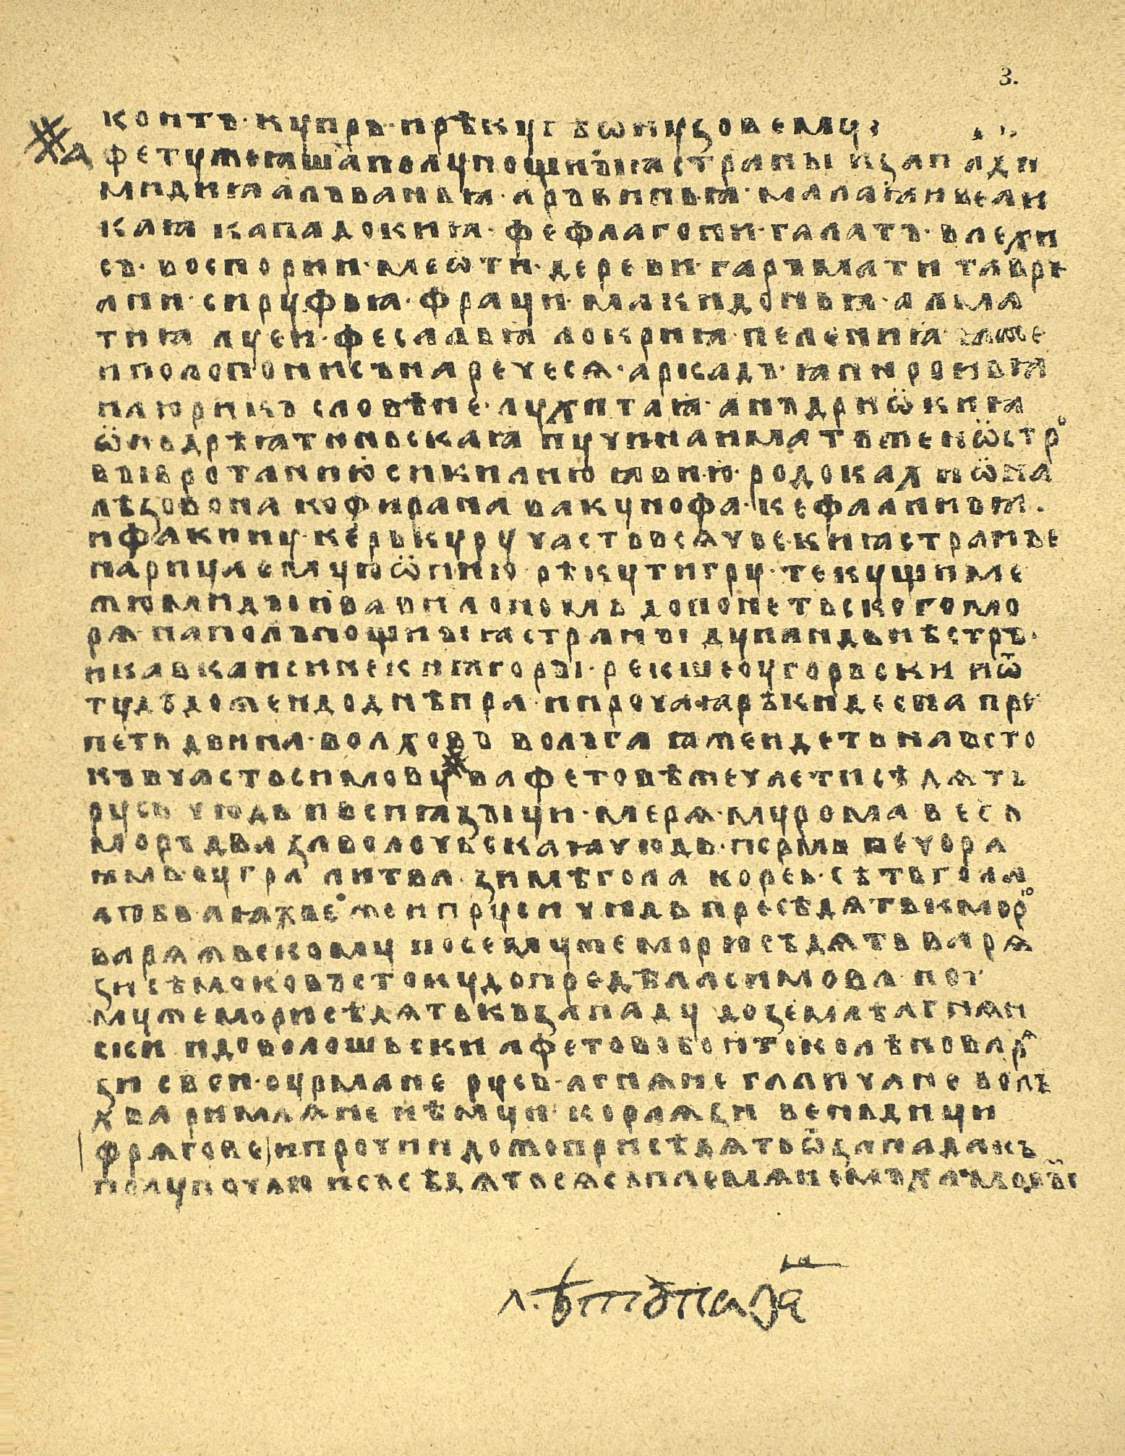 3.
контъ · купръ · прѣкуг ъѡнузовему ·
афетуже ꙗша полунощнъꙗ страны изапахи
мидиꙗ алъваньꙗ · аръѣниьꙗ · малаꙗ ивели
каꙗ кападокиꙗ · фефлагони · галатъ · влехи
съ · воспории · меѡти · дереви · гаръмати таври
ани · сируфьꙗ · фраци · макидоньꙗ · алма
тиꙗ луеи · феслаьꙗ локриꙗ · пелениꙗ ꙗже
иполопониисъ наречесѧ · аркадъ · ꙗпироньꙗ
илюрикъ словѣне · лухитаꙗ · анъдриѡкиꙗ
ѡньдрѣꙗтиньскаꙗ пучина иматъжеиѡстро
въıвротанию сикилию ꙗвию · родока хиѡна
лѣзовона кофирана вакунофа · кефалиньꙗ ·
ифакину · керькуру частьвсѧчьскиꙗ странъı
нарицаемуюѡнию рѣку тигру · текущи ме
жюмидъı ивавилономь допонетьскогомо
рѧ наполънощнъıꙗ странъı дунаи дьнѣстръ ·
икавкаисинекиꙗ горъı · рекшеоугорьски иѿ
тудъдожеидоднѣпра ипрочаꙗ рѣки десна при
петь двина · волховъ волъга ꙗжеидеть навсто
къ вчастьсимову вафетовѣжечаститисѣдѧть
русь чюдь ивсиꙗзъıци · мерѧ · мурома весь
моръдва заволочьскаꙗ чюдь · пермь печора
ꙗмь · оугра литва · зимѣгола корсь · сѣтьгола
любь лѧховежеипруси чюдь пресѣдѧтькморю
варѧжьскому посемужеморюсѣдѧть варѧ
зи сѣмокъвъстокудопредѣласимова пот
мужеморисѣдѧтькъзападу доземлѣагнѧн
ски идоволошьски афетовобоитоколѣноварѧ
зи свеи · оурмане русь · агнѧне галичане волъ
хва римлѧне нѣмци корлѧзи веньдици
фрѧгове ипрочии дожоприсѣдѧтьѿзападакъ
полуночюи съсѣдѧтьсѧсъплемѧнемъ хамовъı